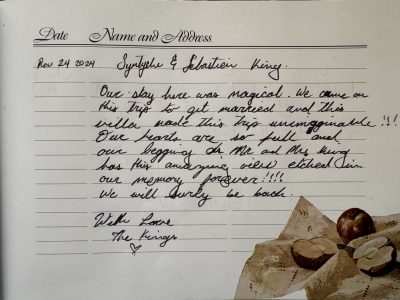 Date Name and Address
Nov 24 2024 Syntyche & Sebastien King.
Our stay here was magical. We came on
this trip to get married and this
villa made this trip unimaginable !!!
Our hearts are so full and
our begging as Mr and Mrs King
has this amazing view etched in
our memory forever!!!!
We will surely be back.
With Love
The Kings